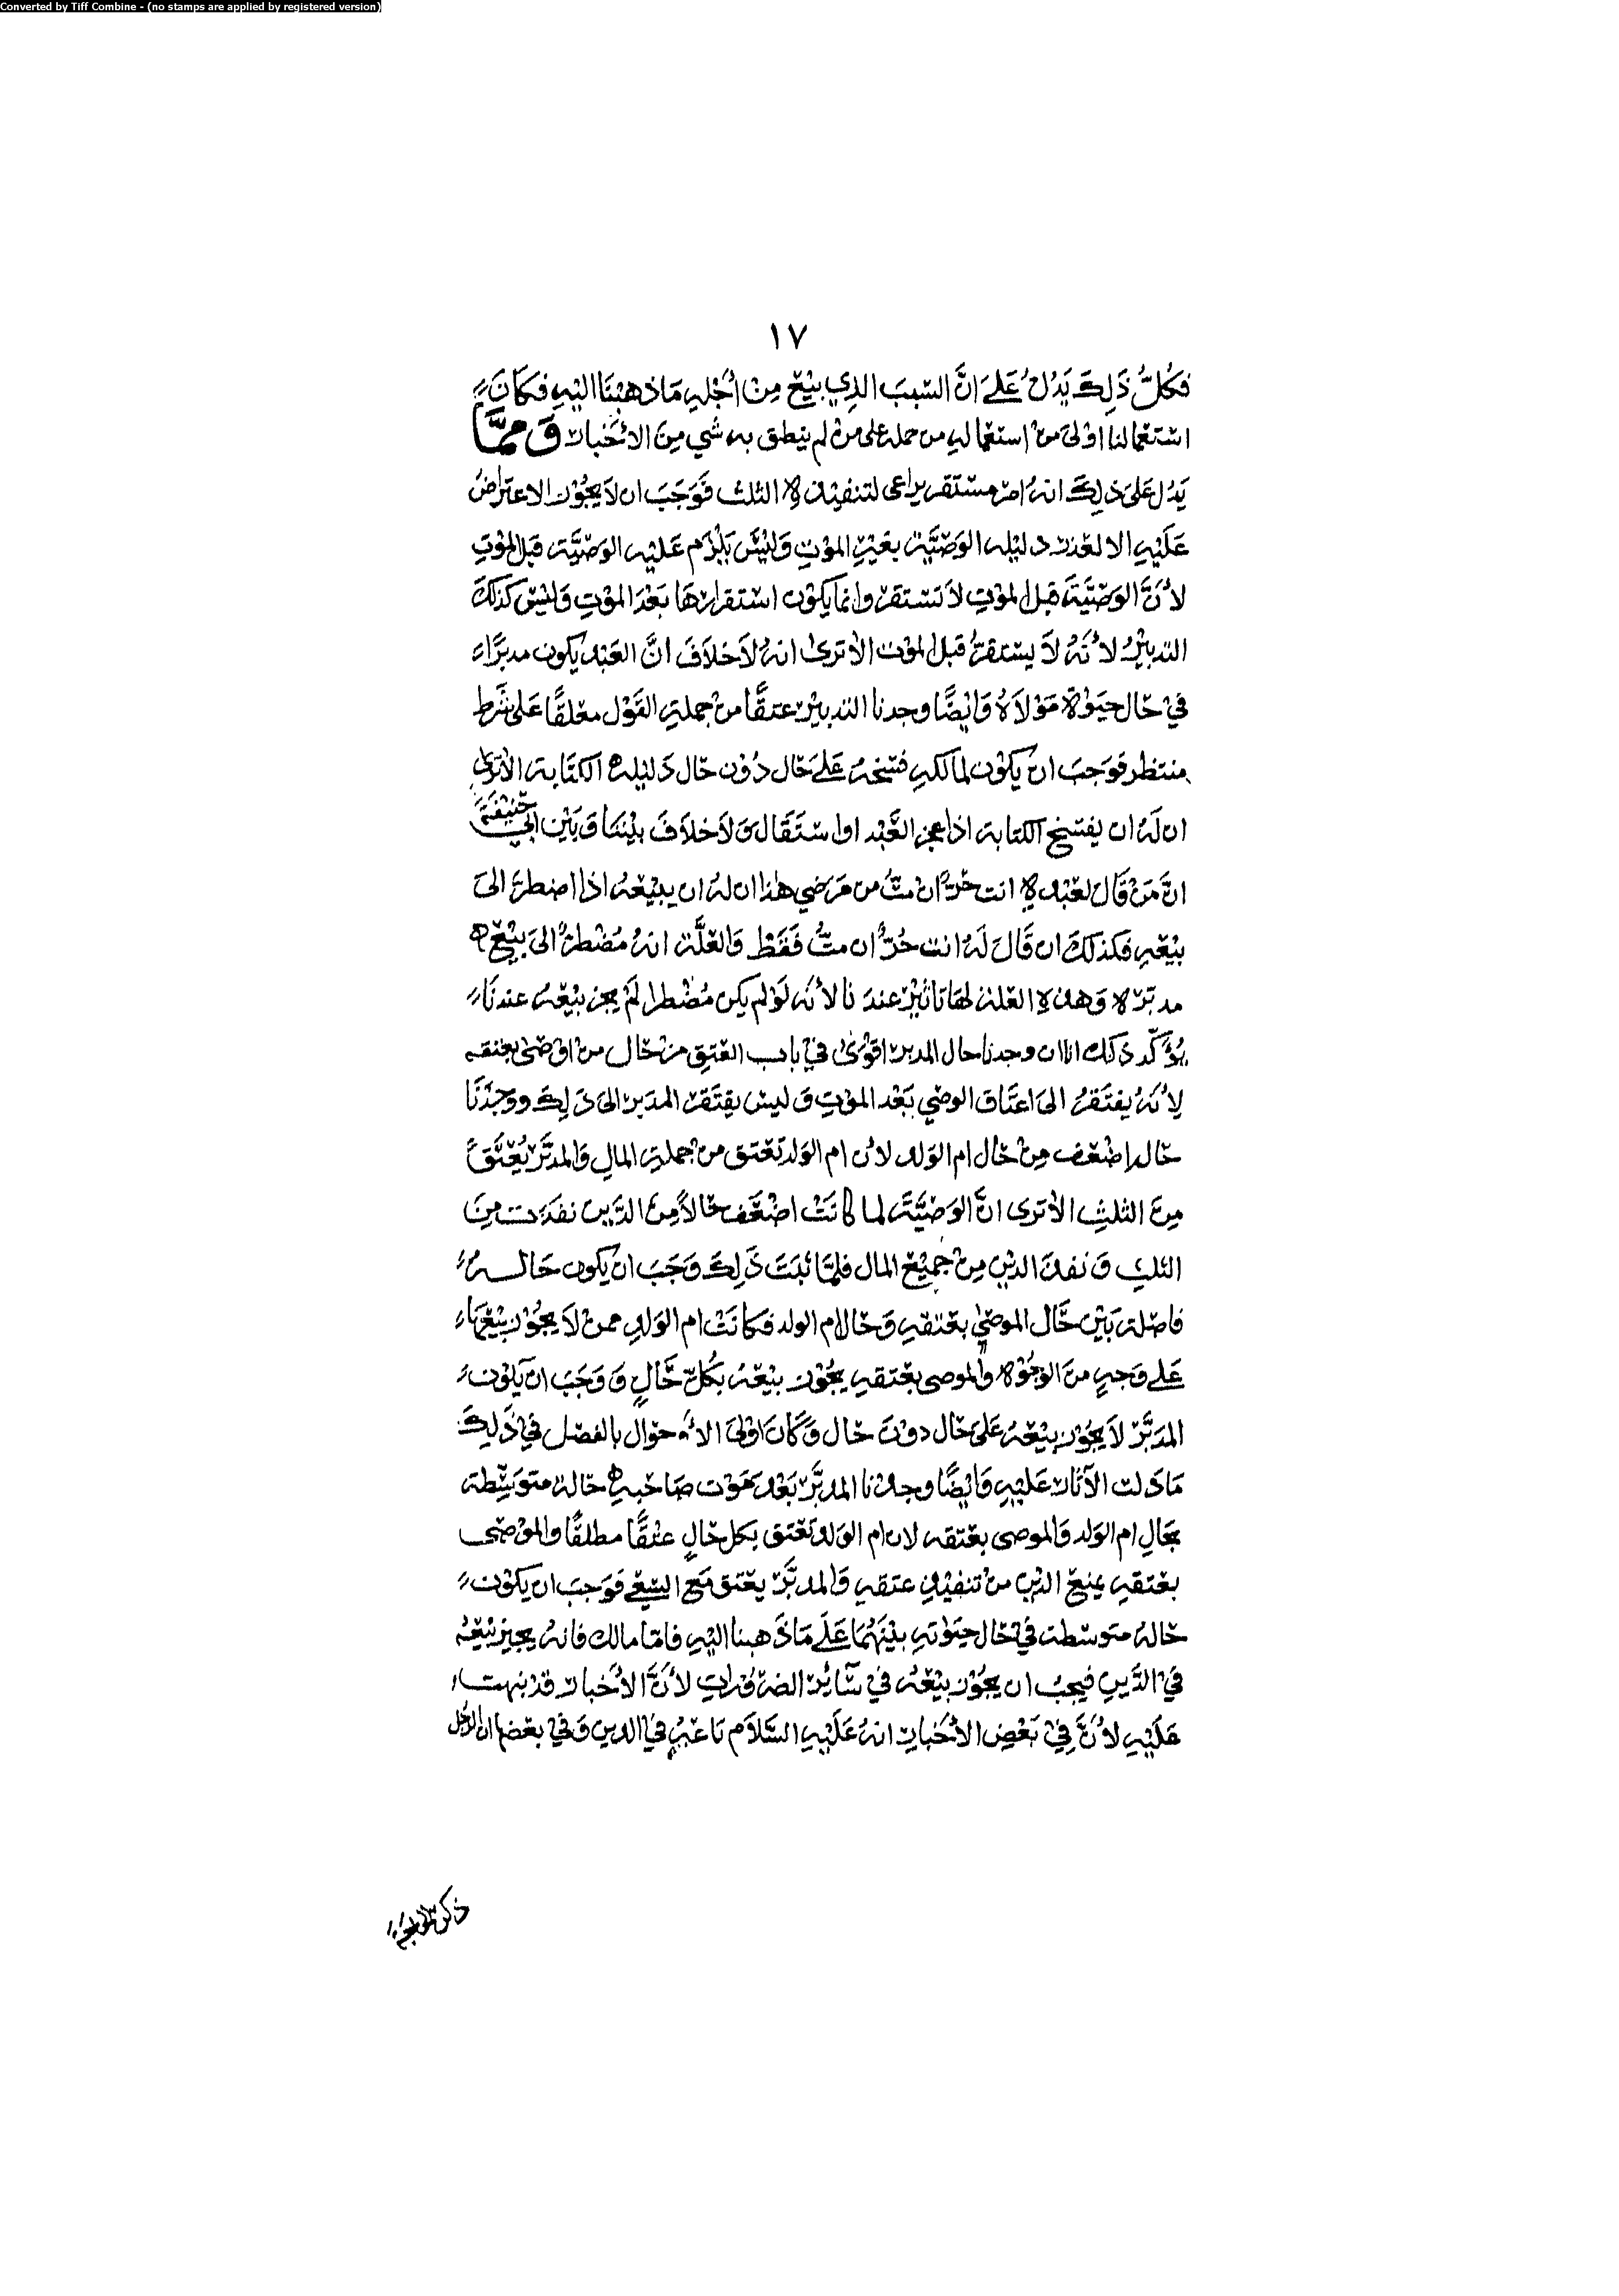 Converted by Tiff Combine - (no stamps are applied by registered version)
١٧
فكُلُّ ذَلِكَ يَدُلُ عَلَى اَنَّ السّبَبَ الذِي بِيْعَ مِنْ اُجْلِهِ مَا ذهبْنَا اليْهِ فكانَ
استعمالنا اوْلىَ منْ استعماله من حمله على منْ لم ينطق به شي مِنَ الاُخبار وَممَّا
يَدُل عَلىَ ذلِكَ انهُ امرٌ مسْتقر يراعى لتنفيذه الثلث فَوَجَبَ ان لاَ يجُوْز الاعتراضُ
عَلَيْهِ الا لعذر دليله الوَصيَّة بعَيْرِ الموْتِ وَليْسَ يَلْزم عَليْه الوَصيَّة قبل الموْتِ
لاُنَّ الوَصيَّةَ قبل الموْتِ لاَ تستقر وانما يَكوْن استقرارهَا بَعْدَ الموْتِ وَليْسَ كذلكَ
التدبيْرُ لاُنهُ لاَ يستقرُّ قبل الموْت الاَ ترىَ انهُ لاَ خلاَفَ انَّ العَبْد يَكون مدبرًا
فيْ حَال حيَوٰة مَوْلاَهُ وَايضًا وجدنا التدبيْر عتقًا منْ جملةِ القَوْل معَلقًا عَلى شَرط
منتظر فوَجبَ انْ يَكوْن لمالكهِ فسْخهُ عَلىَ حَال دُوْن حَال دَليْله الكتَابة الاَ ترىَ
ان لَهُ ان يفسَخ الكتابة اذا عجز العَبْد او استَقَال وَلاَ خلاَفَ بَيْننَا وَبَيْن ابيْ حَنيْفَةَ
انَّ مَنْ قَال لعَبْده انت حُرٌّ انْ متُّ من مَرَضي هٰذا ان لهُ ان يبيْعَهُ اذا اضطر الىَ
بيْعهِ فكذلكَ ان قَالَ لَهُ انت حُرٌّ ان متُّ فَقَطْ وَالعلَّة انهُ مُضْطرٌ الىَ بيْعِ
مدبّره وَهذه العَلة لهَا تاثيْر عندَنا لاُنه لَوْ لم يكن مُضْطرا لمْ يجز بيْعهُ عندنَا
يُؤَكّد ذلكَ انا وجدنا حال المدبر اقوْىٰ فيْ باب العَتقِ منْ حَال من اوْصىٰ بعتقه
لاُنهُ يفتَقرُ الىَ اعتَاق الوصي بَعْد الموْتِ وَليسَ يفتَقر المدَبر الىَ ذَلِكَ وَوَجدْنَا
حَاله اضعَف مِنْ حَال ام الوَلد لاُن ام الوَلد تعْتق منْ جملةِ المال وَالمدبَّر يُعْتَقُ
مِنَ الثلثِ الاَ ترى انَّ الوَصيَّةَ لما كانَتْ اضْعَف حَالاً مِنَ الدَّين نفذت مِنَ
الثلثِ وَنفذ الديْن مِنْ جَمِيْعِ المال فلمَّا ثبَتَ ذَلِكَ وَجَبَ انْ يَكون حَالهُ
فاصلة بَيْن حَال الموصىٰ بعتقهِ وَحَال ام الولد فكانَتْ ام الوَلدِ ممنْ لاَ يجُوْز بيْعهَا
عَلىَ وَجهٍ منَ الوجُوْه وَالموصى بعَتقهِ يجُوْز بيْعهُ بكُلِّ حَالٍ وَوَجَبَ انْ يَكوْن
المدَبَّر لاَ يجُوْز بيْعهُ عَلىَ حَال دوْنَ حَال وَكانَ اوْلىَ الاُحوَال بالفَصْل فيْ ذَلِكَ
مَا دَلت الآثار عَليْهِ وَايْضًا وجدْنا المدبَّر بَعْد مَوْت صَاحبهِ حَاله متوَسّطة
بحَالِ ام الوَلد وَالموصى بعَتقه لان ام الوَلد تعْتق بكل حَالٍ عتْقًا مطلقًا والموْصىٰ
بعَتقهِ يمنعَ الدّين منْ تنفيْذِ عتقهِ وَالمدبَّر يعْتق مَعَ السّعْيِ فَوَجبَ ان يكوْن
حَالهُ متوسّطة فيْ حَال حيَوٰتهِ بيْنهُمَا عَلَى مَا ذَهبنا اليْهِ فامَّا مالك فانهُ يجيز بَيْعهُ
فيْ الدَّينِ فيجبُ ان يجُوْز بيْعهُ فيْ سَآئر الضرُوراتِ لاُنَّ الاُخبار قدْ نبهت
عَلَيْهِ لاُنَّ فِيْ بَعْضِ الاُخْبارِ انهُ عَلَيْهِ السَّلاَم بَاعَهُ فيْ الدين وَفيْ بعَضها ان الرَّجُل